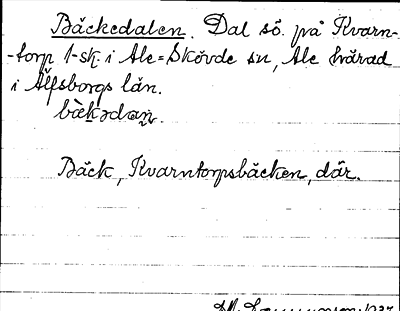 Bäckedalen. Dal sö. på Kvarn-
-torp 1-sk i Ale-Skövde sn, Ale härad
i Älfsborgs län.
bækədan
Bäck, Kvarntorpsbäcken, där.